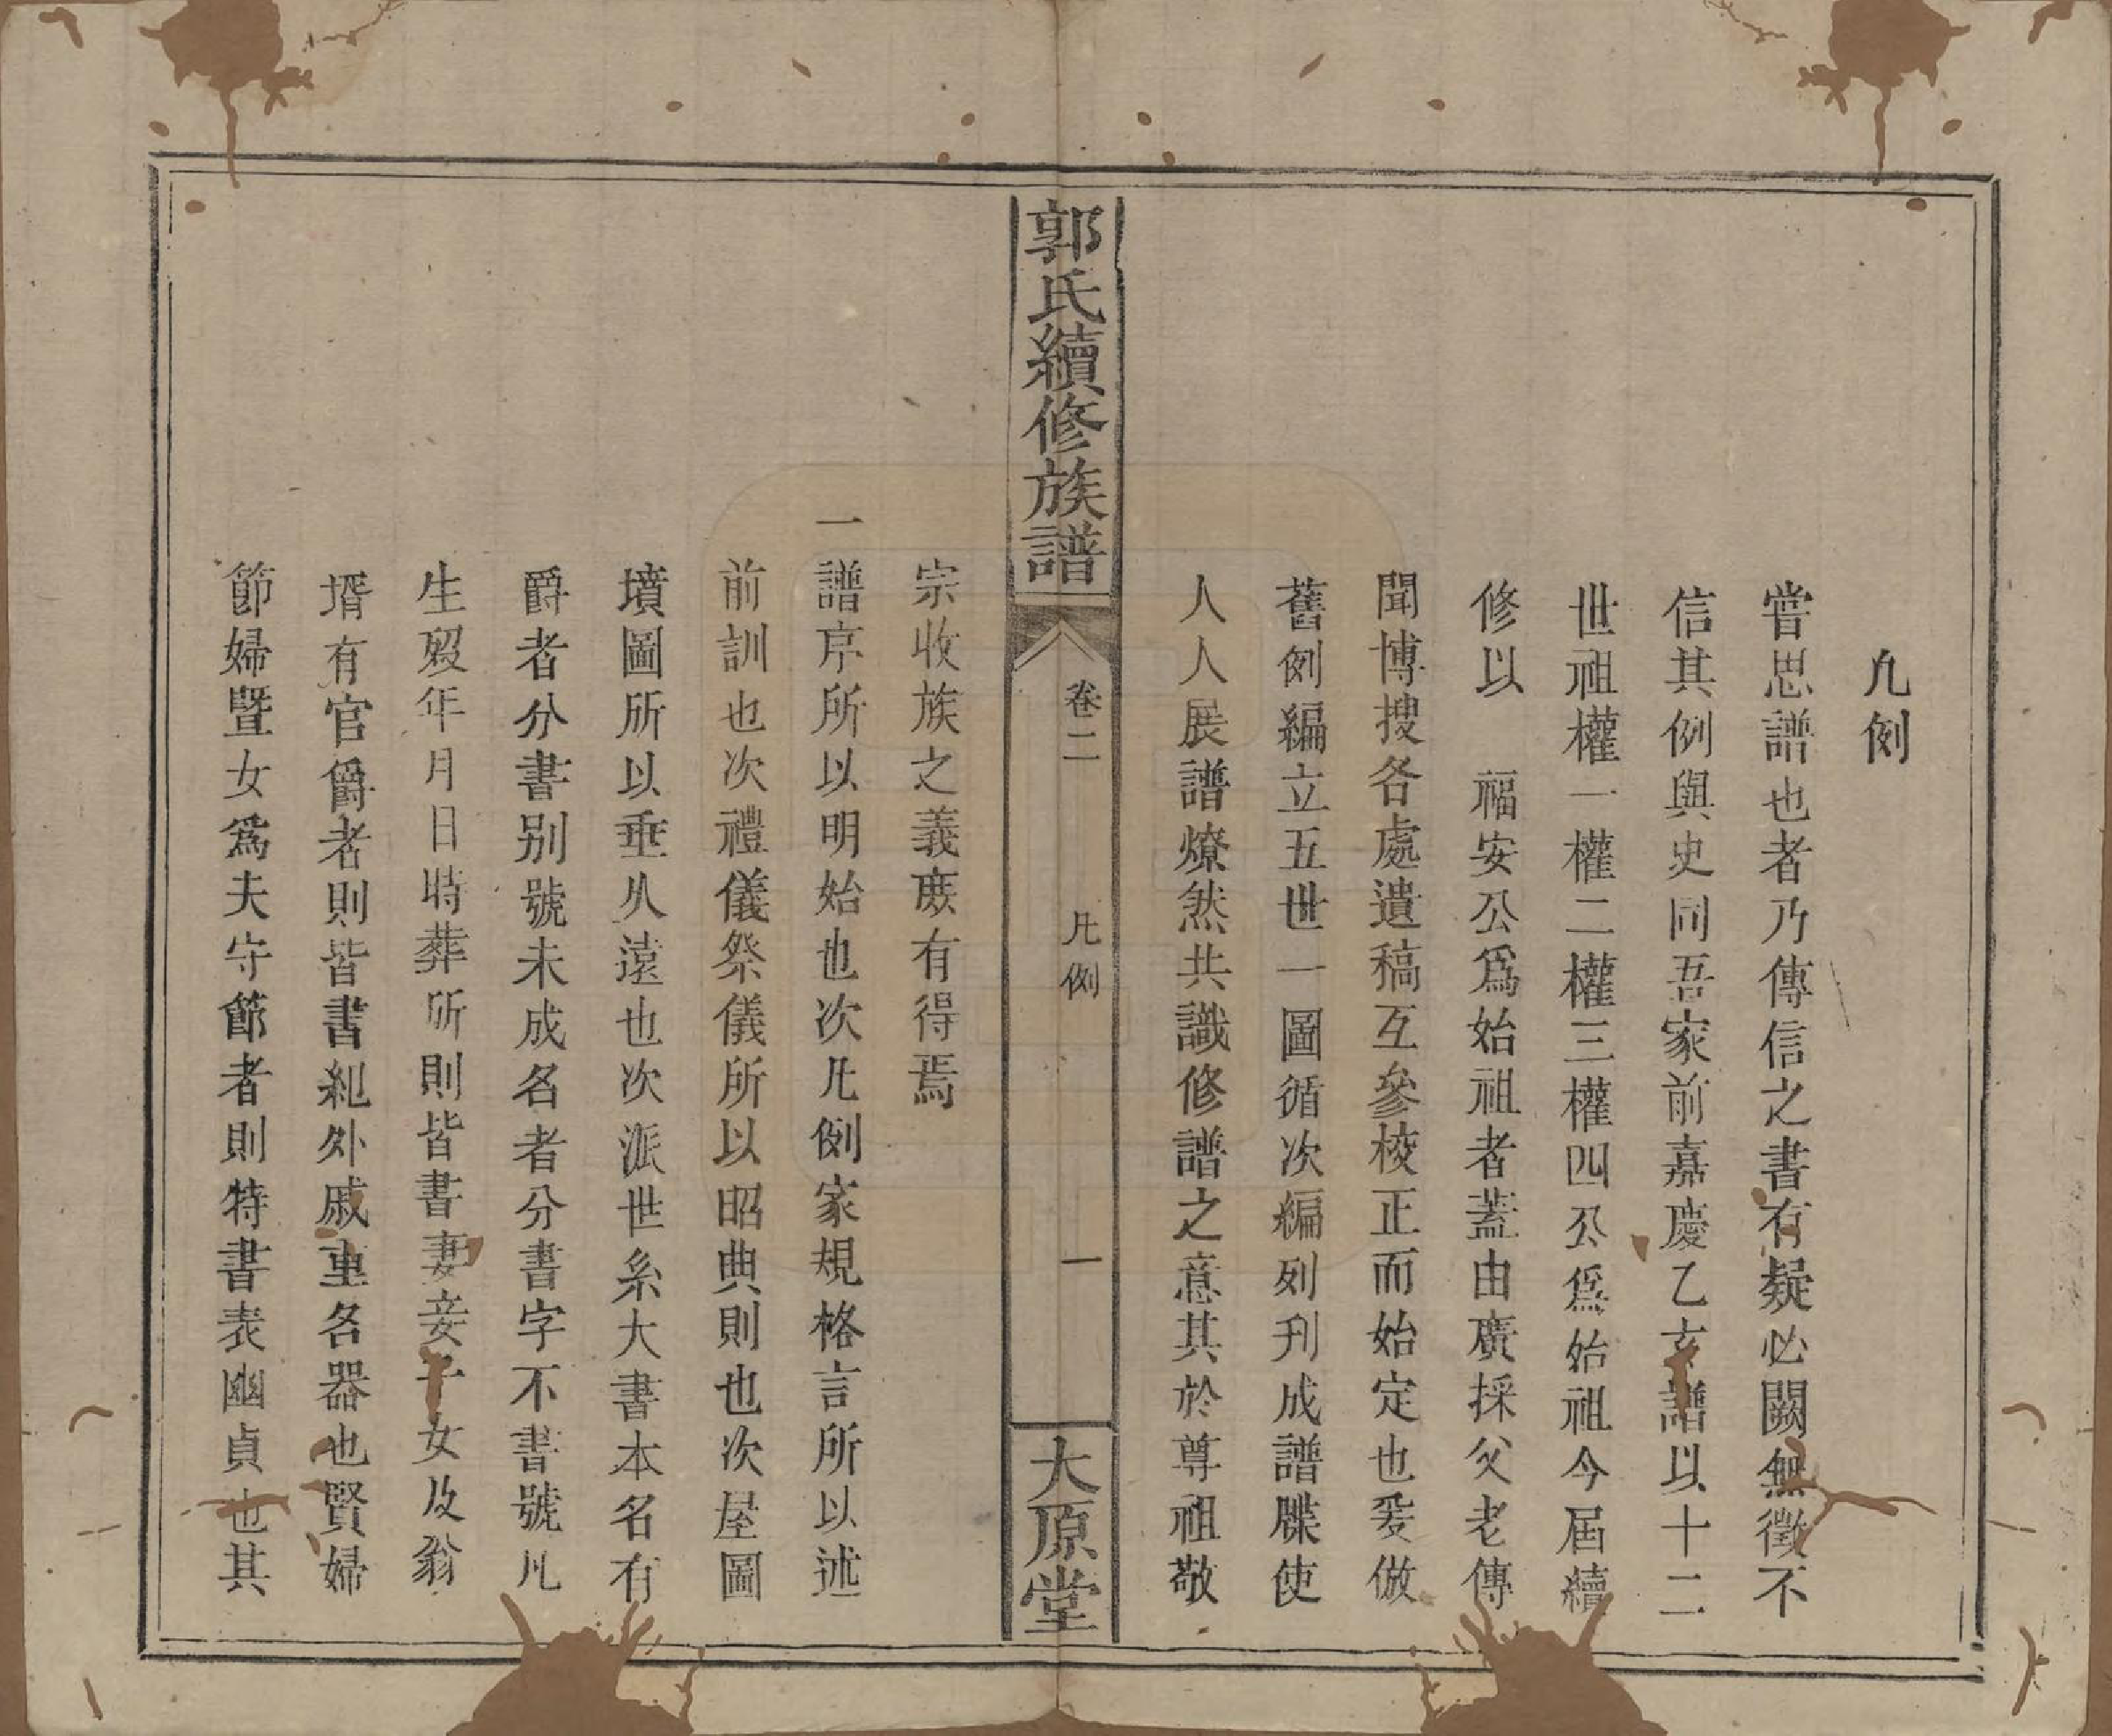 凡例
嘗思譜也者乃傳信之書有疑必闕無徵不
信其例與史同吾家前嘉慶乙亥譜以十二
世祖權一權二權三權四公爲始祖今屆續
修以　福安公爲始祖者蓋由廣採父老傳
聞博搜各處遺稿互參校正而始定也爰倣
舊例編立五世一圖循次編列刋成譜牒使
人人展譜燎然共識修譜之意其於尊祖敬
郭氏續修族譜
卷二
凡例
一
太原堂
宗收族之義庶有得焉
一譜序所以明始也次凡例家規格言所以述
前訓也次禮儀祭儀所以昭典則也次屋圖
墳圖所以垂久遠也次派世系大書本名有
爵者分書别號未成名者分書字不書號凡
生殁年月日時葬所則皆書妻妾子女及翁
壻有官爵者則皆書紀外戚重名器也賢婦
節婦暨女爲夫守節者則特書表幽貞也其